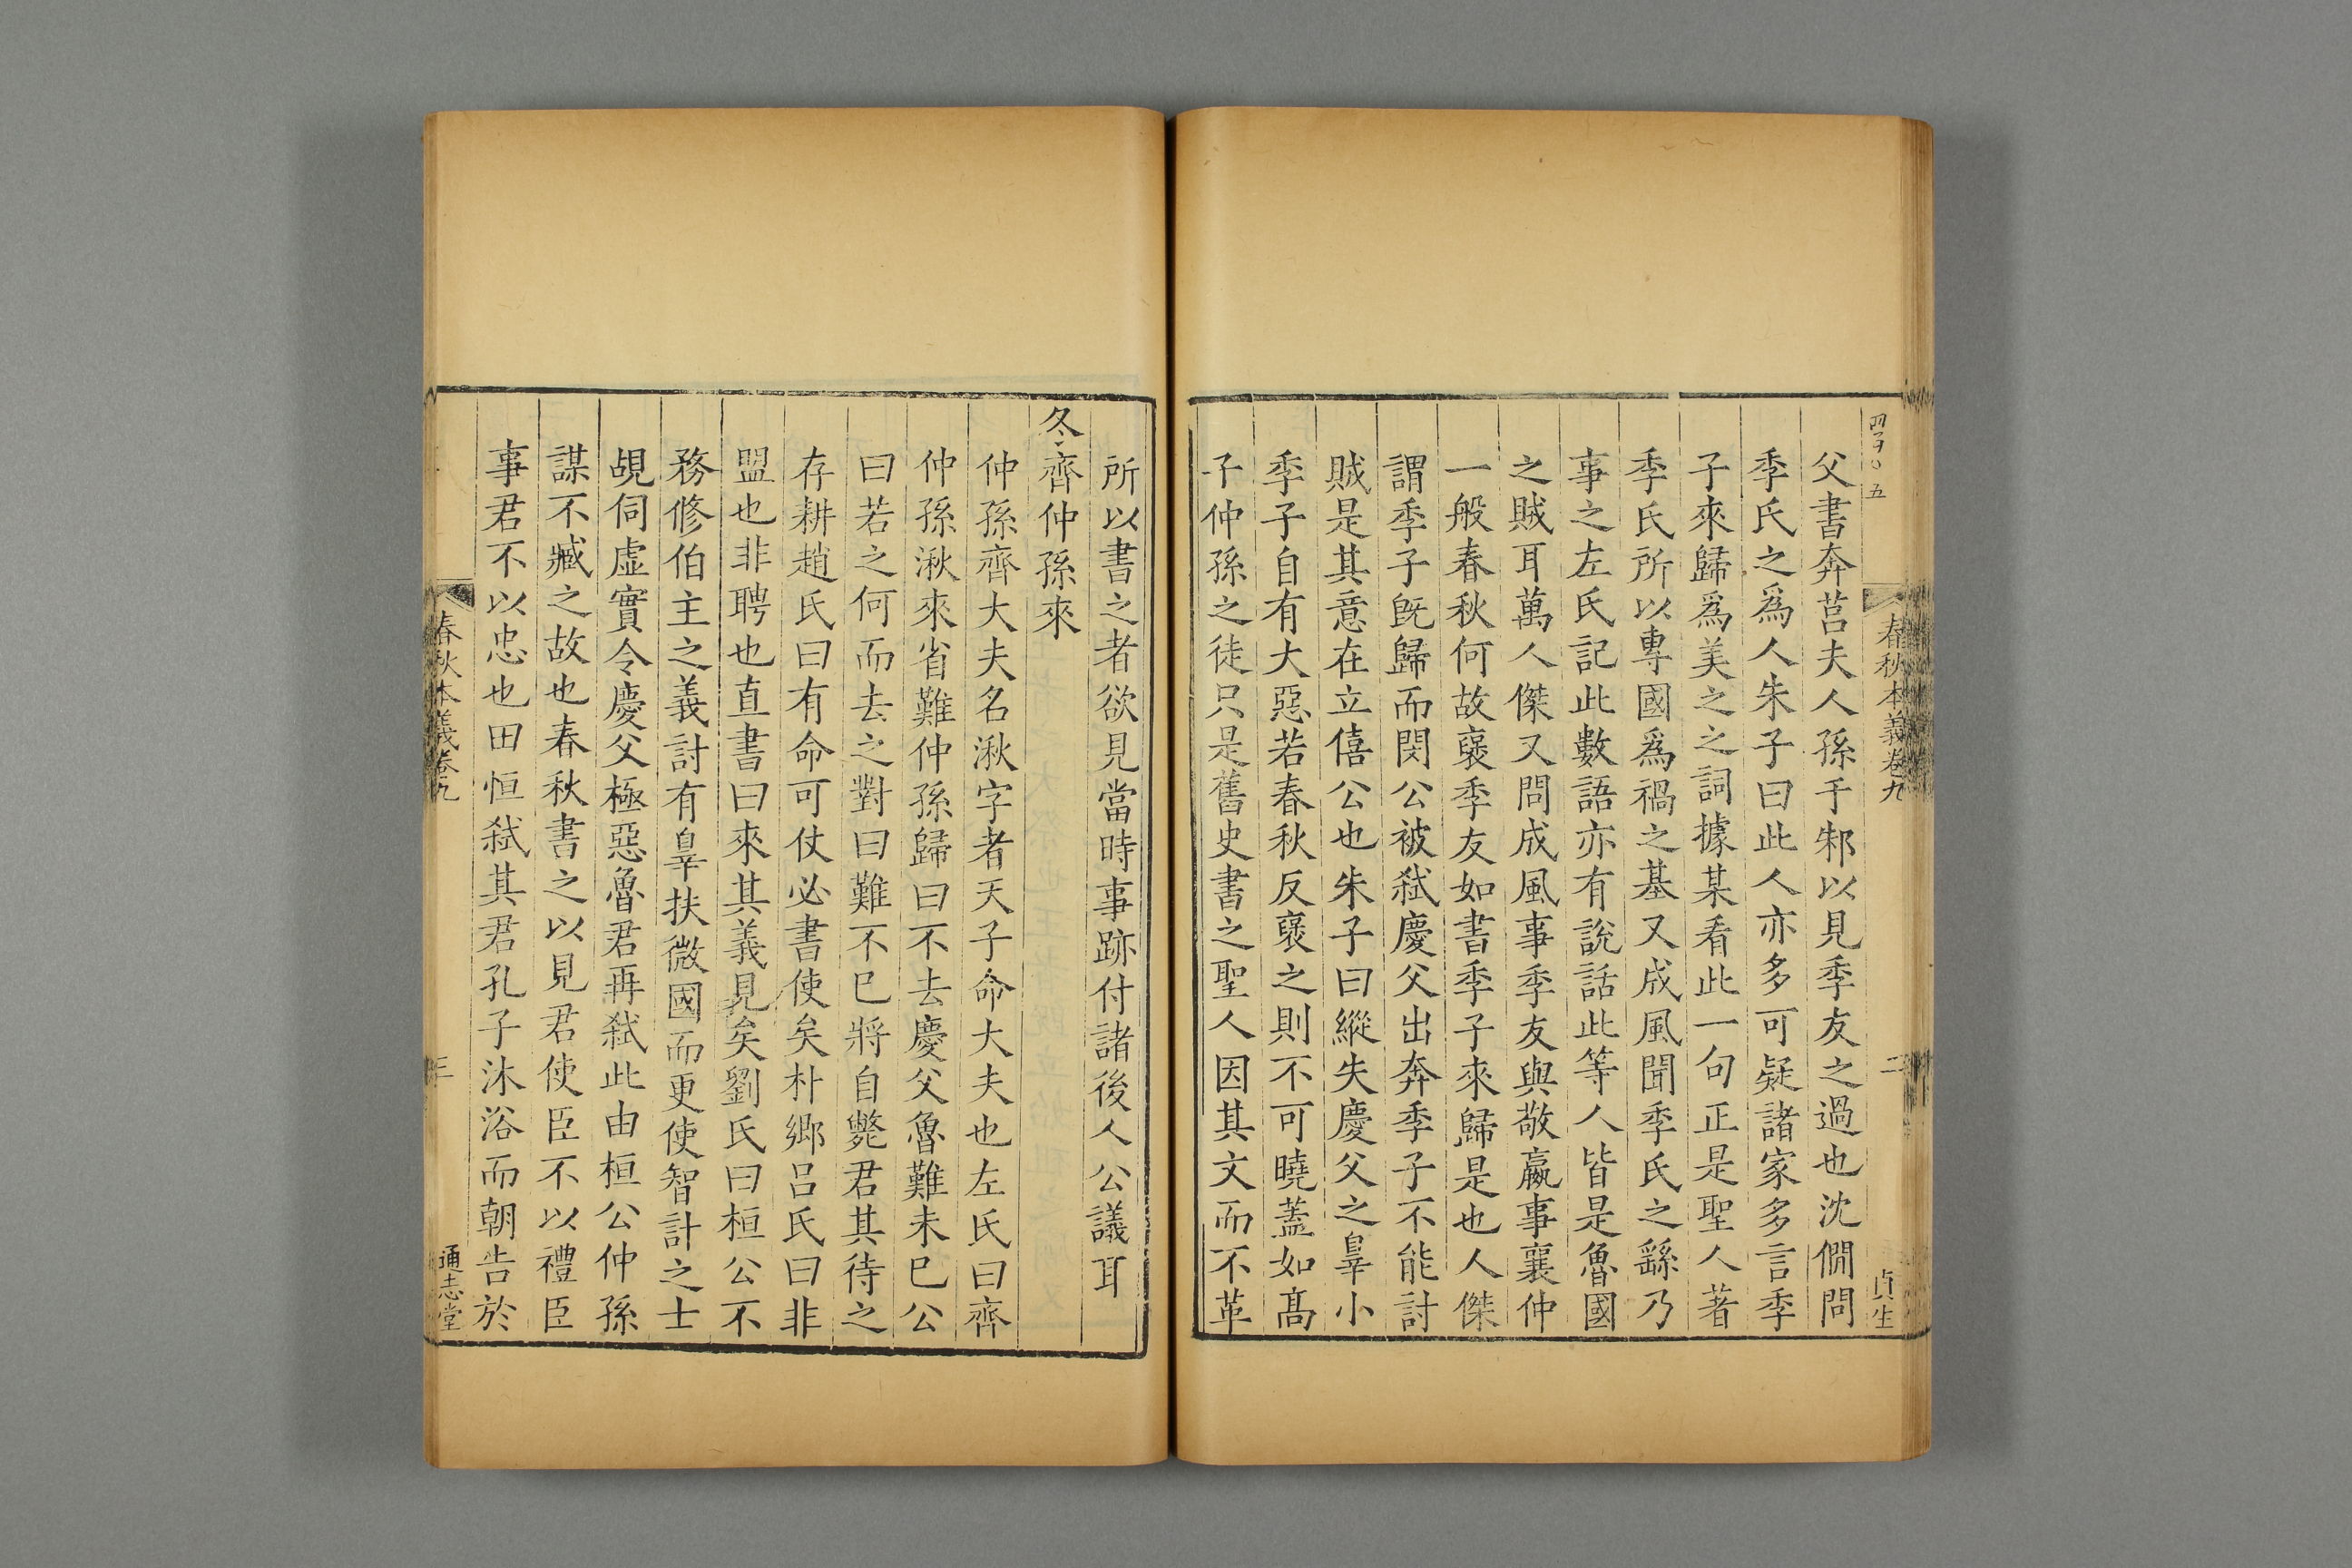 春秋本義卷九
二
貞生
父書奔莒夫人孫于邾以見季友之過也沈僩問
季氏之爲人朱子曰此人亦多可疑諸家多言季
子來歸爲美之之詞據某看此一句正是聖人著
季氏所以專國爲禍之基又成風聞季氏之繇乃
事之左氏記此數語亦有說話此等人皆是魯國
之賊耳萬人傑又問成風事季友與敬嬴事襄仲
一般春秋何故襃季友如書季子來歸是也人傑
謂季子旣歸而閔公被弒慶父出奔季子不能討
賊是其意在立僖公也朱子曰縱失慶父之辠小
季子自有大惡若春秋反襃之則不可曉蓋如高
子仲孫之徒只是舊史書之聖人因其文而不革
所以書之者欲見當時事跡付諸後人公議耳
冬齊仲孫來
仲孫齊大夫名湫字者天子命大夫也左氏曰齊
仲孫湫來省難仲孫歸曰不去慶父魯難未已公
曰若之何而去之對曰難不已將自斃君其待之
存耕趙氏曰有命可仗必書使矣朴鄉呂氏曰非
盟也非聘也直書曰來其義見矣劉氏曰桓公不
務修伯主之義討有辠扶微國而更使智計之士
覘伺虛實令慶父極惡魯君再弒此由桓公仲孫
謀不臧之故也春秋書之以見君使臣不以禮臣
事君不以忠也田恒弒其君孔子沐浴而朝告於
春秋本義卷九
三
通志堂